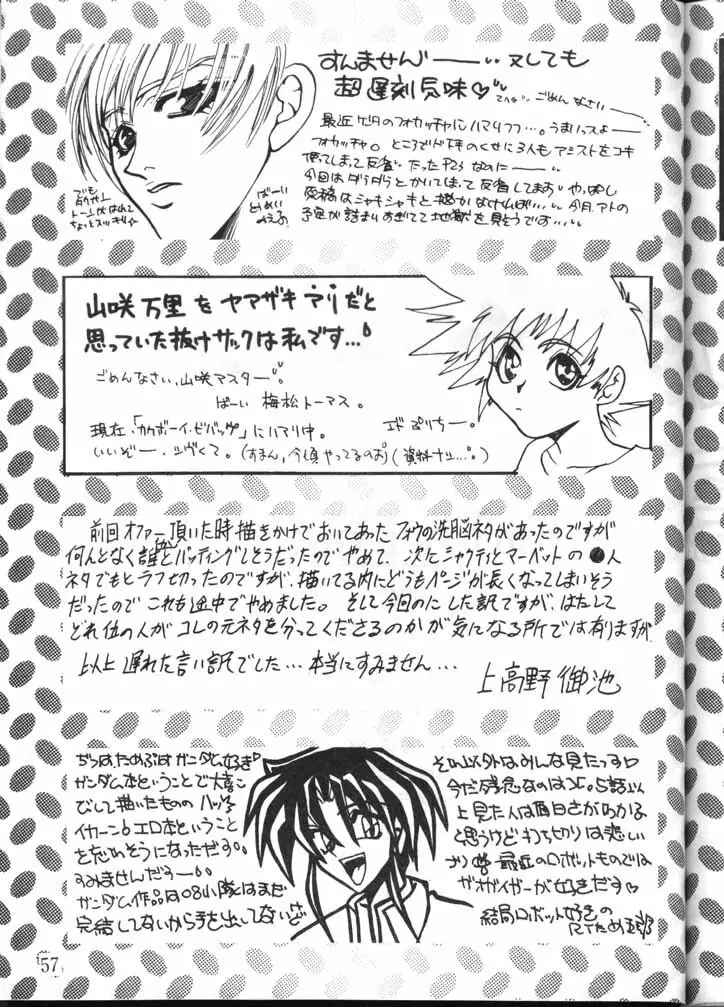 すんませんー…又しても
超遅刻気味♡
ごめんなさいー
最近 のフォカッチャにハマりつつ…。うまいっスよー
フォカッチャ。ところで のくせに3人もアシストをコキ
使ってしまって反省 だったP23なのにー
今回はダラダラとかいてしまって反省してます やっぱし
原稿はシャキシャキと描かなければ… 今月アトの
予定が詰まりすぎてて地獄を見そうです…
でも
トーンがはれて
ちょっとスッキリ
ばーい
山咲万里をヤマザキマリだと
思っていた抜けサックは私です…
ごめんなさい、山咲マスター。
ばーい 梅松トーマス。
現在、「カウボーイ・ビバップ」にハマり中。
いいぞー (すまん、今頃やってるのお)(資料ナシ…。)
エドぷりちー。
前回オファー頂いた時描きかけでおいてあったフォウの洗脳ネタがあったのですが
何んとなく誰かとバッティングしそうだったのでやめて、次にシャクティとマーベットの●人
ネタでもとラフ切ったのですが、描いてる内にどうもページが長くなってしまいそう
だったのでこれも途中でやめました。そして今回のにした訳ですが、はたして
どれ位の人がコレの元ネタを分ってくださるのかが気になる所では有りますが
以上遅れた言い訳でした…本当にすみません…
上高野御池
ガンダム好き
ガンダム本ということで大喜
びして描いたものの ハッ
イカーンbエロ本ということ
を忘れそうになっただす
すみませんだすー
ガンダム作品は08小隊はまだ
完結してないから手を出してない
それ以外はみんな見たっす
今だ残念なのは 5話以
上見た人は面白さがわかる
と思うけど わち切りは悲しい
最近のロボットものでは
ガオガイガーが好きだす♡
結局ロボット好きの
57